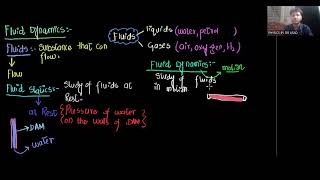 Fluid Dynamics:-
Fluids:- Substance that can flow.
Flow
Fluid statics:- Study of fluids at Rest.
at Rest { Pressure of water on the walls of DAM }
DAM
water
Fluids
liquids (water, petrol )
Gases (air, oxygen, H₂)
Fluid Dynamics:-
motion
Study of fluids in motion